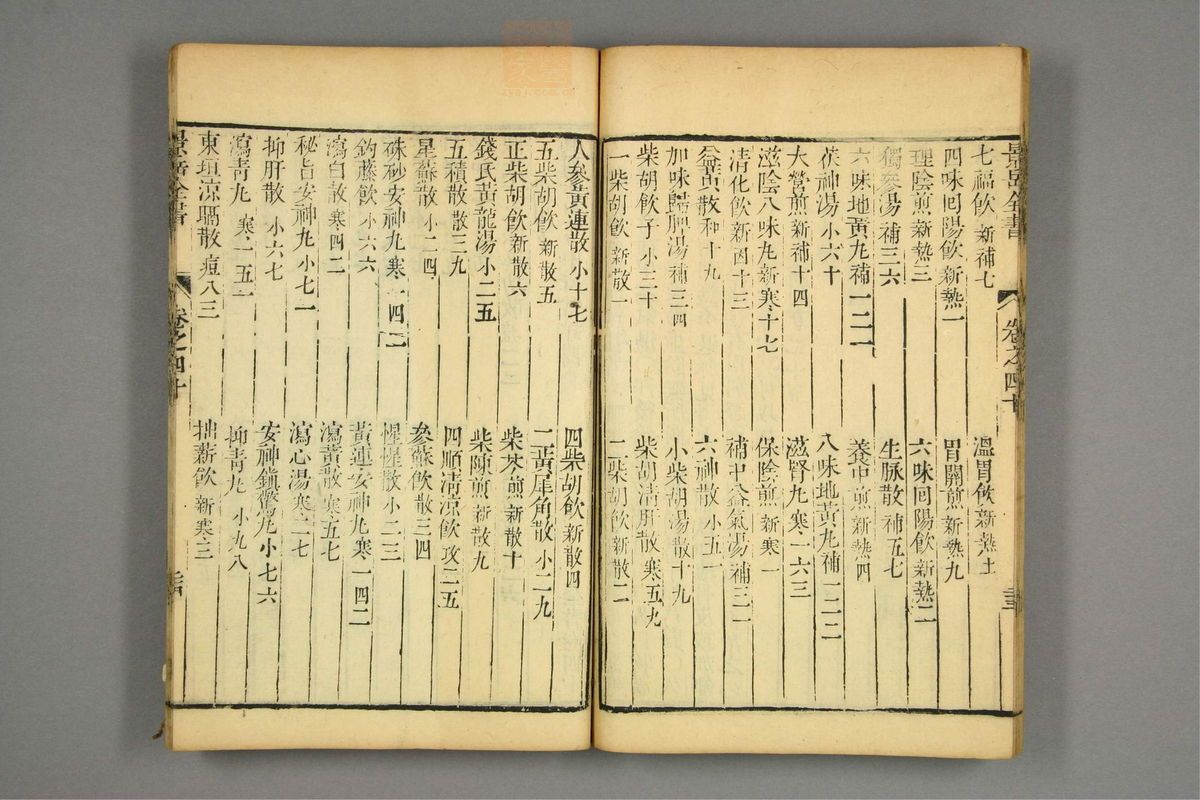 景岳全書 卷之四十
七福飲 新補七
溫胃飲 新熱五
四味回陽飲 新熱一
胃關煎 新熱九
理陰煎 新熱三
六味回陽飲 新熱二
獨參湯 補三六
生脉散 補五七
六味地黃丸 補一二一
養中煎 新熱四
茯神湯 小六十
八味地黃丸 補一二二
大營煎 新補十四
滋腎丸 寒一六三
滋陰八味丸 新寒十七
保陰煎 新寒一
清化飲 新因十三
補中益氣湯 補三一
益黃散 和十九
六神散 小五一
加味歸脾湯 補三四
小柴胡湯 散十九
柴胡飲子 小三十
柴胡清肝散 寒五九
一柴胡飲 新散一
二柴胡飲 新散二
人參黃連散 小十七
四柴胡飲 新散四
五柴胡飲 新散五
二黃犀角散 小二九
正柴胡飲 新散六
柴芩煎 新散十
錢氏黃龍湯 小二五
柴陳煎 新散九
五積散 散三九
四順清凉飲 攻二五
星蘇散 小二四
參蘇飲 散三四
硃砂安神丸 寒一四二
惺惺散 小二三
釣藤飲 小六六
黃連安神丸 寒一四二
瀉白散 寒四二
瀉黃散 寒五七
秘旨安神丸 小七一
瀉心湯 寒二七
抑肝散 小六七
安神鎮驚丸 小七六
瀉青丸 寒一五一
抑青丸 小九八
東垣凉膈散 痘八三
抽薪飲 新寒三
景岳全書 卷之四十